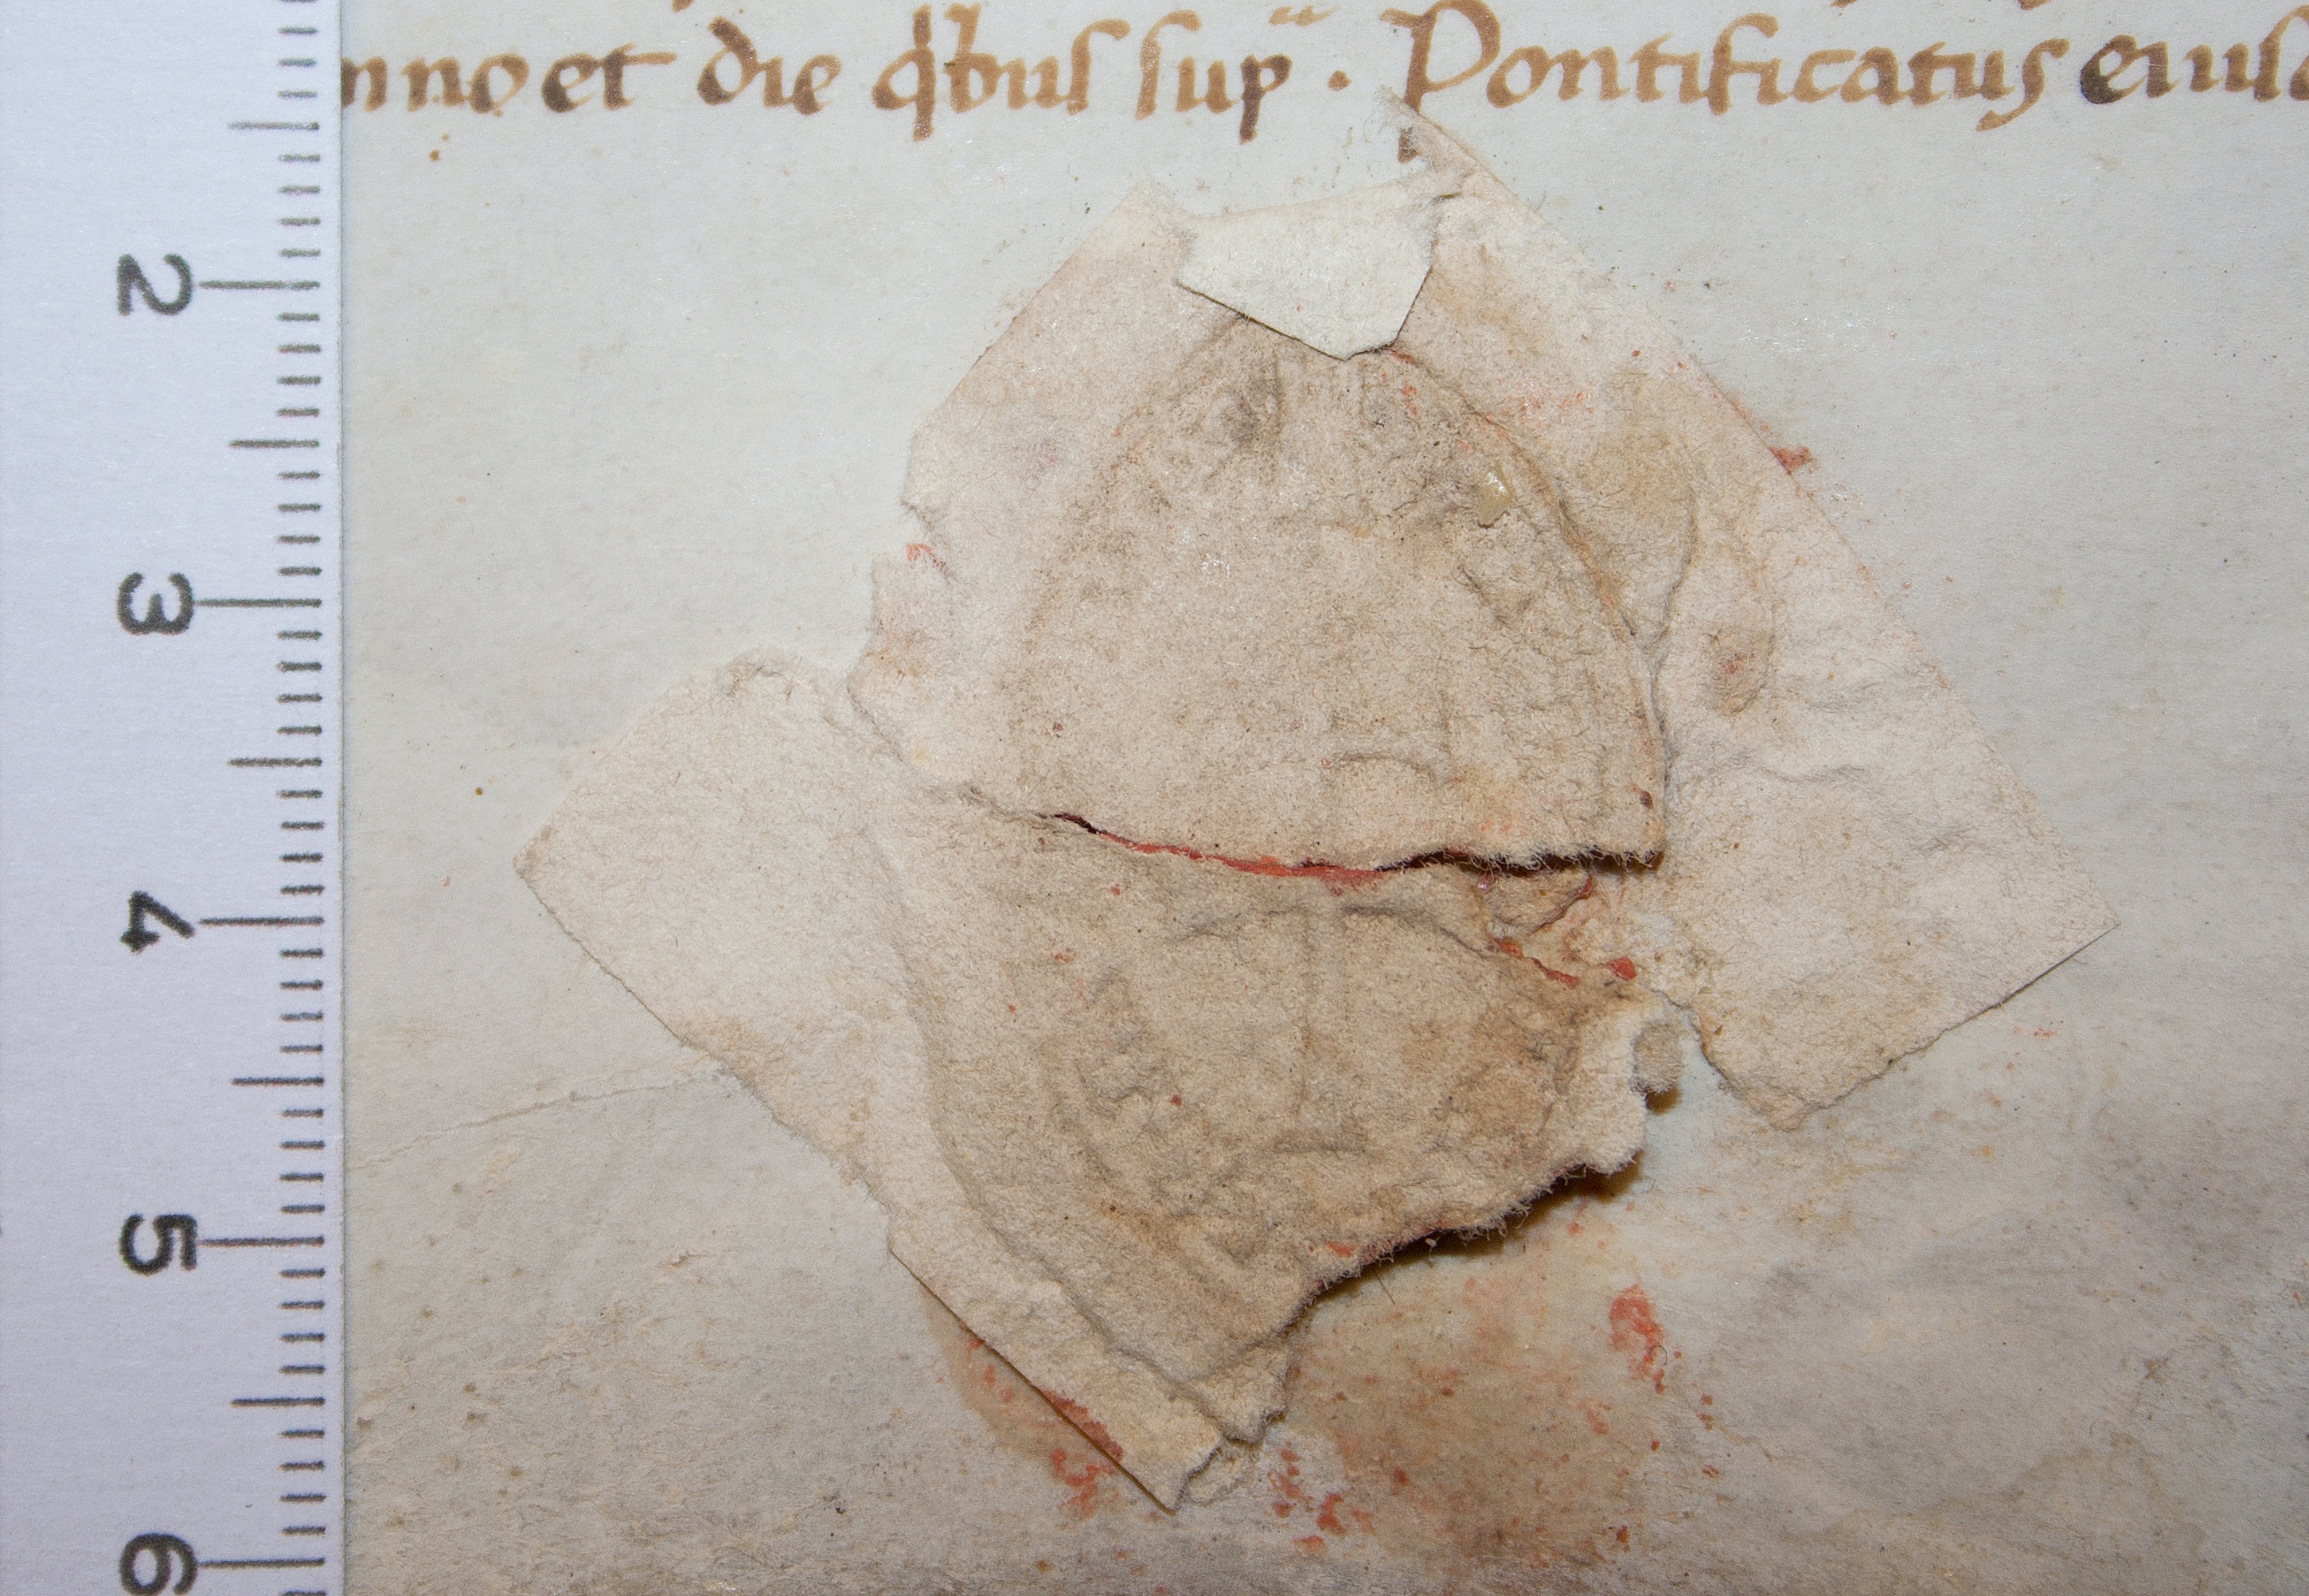 nno et die qbus sup . Pontificatus eiusd
2
3
4
5
6